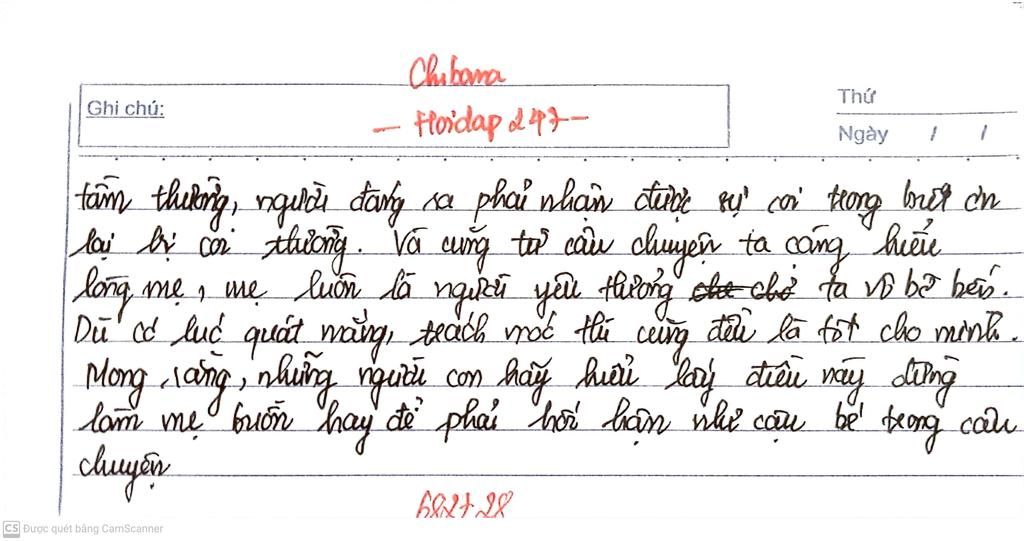 Chibana
Ghi chú:
— Hoidap247 —
Thứ
Ngày / /
tầm thường, người đáng ra phải nhận được sự coi trọng biết ơn
lại bị coi thường. Và cũng từ câu chuyện ta càng hiểu
lòng mẹ, mẹ luôn là người yêu thương ta vô bờ bến.
Dù có lúc quát mắng, trách móc thì cũng đều là tốt cho mình.
Mong rằng, những người con hãy hiểu lấy điều này đừng
làm mẹ buồn hay để phải hối hận như cậu bé trong câu
chuyện
CS Được quét bằng CamScanner